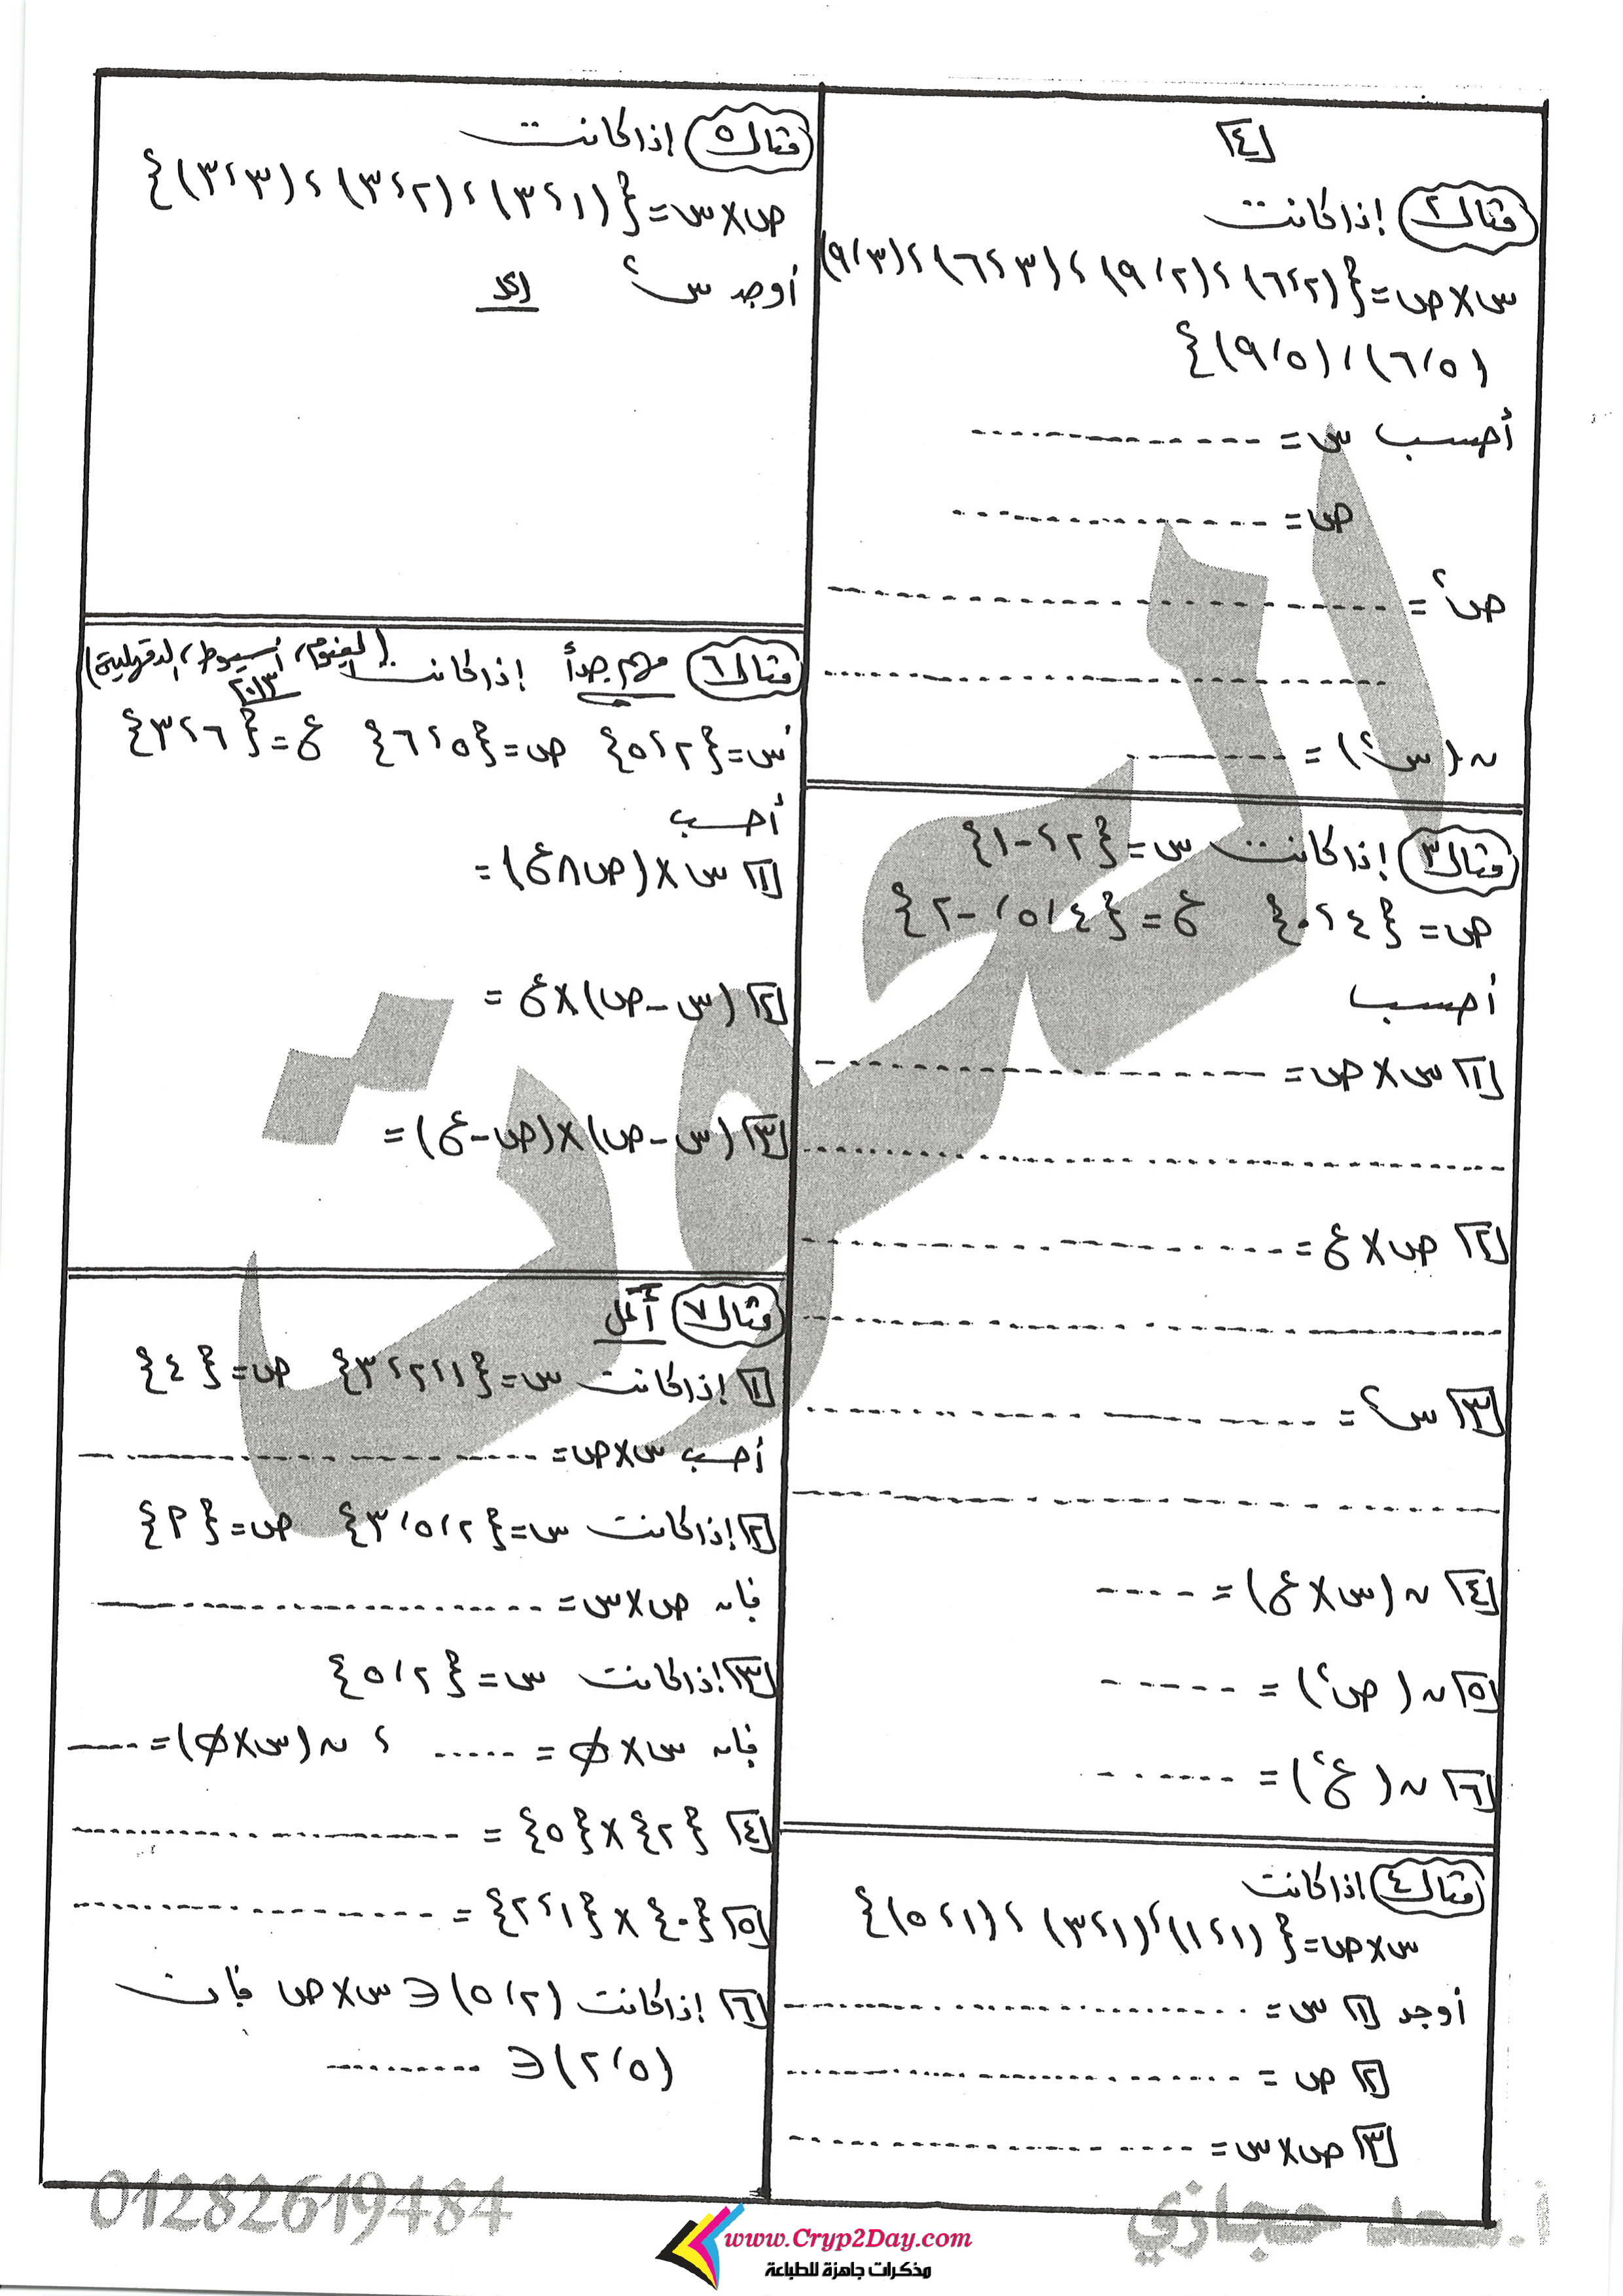 ٤
مثال ٢ إذا كانت
س×ص={(٢،٦)،(٢،٩)،(٣،٦)،(٣،٩)
(٥،٦)،(٥،٩)}
أحسب س = ..............
ص = ..............
ص² = ..............
..............
ن(س²) = ..............
مثال ٣ إذا كانت س={٢،-١}
ص={٤،٠} ع={٤،٥،-٢}
أحسب
١ س×ص = ..............
..............
٢ ص×ع = ..............
..............
٣ س² = ..............
..............
٤ ن(س×ع) = ....
٥ ن(ص²) = ......
٦ ن(ع²) = ......
مثال ٤ اذا كانت
س×ص={(١،١)،(١،٣)،(١،٥)}
أوجد ١ س = ..............
٢ ص = ..............
٣ ص×س = ..............
مثال ٥ إذا كانت
ص×س={(١،٣)،(٢،٣)،(٣،٣)}
أوجد س² الحل
مثال ٦ مهم جداً إذا كانت (الفيوم، أسيوط، الدقهلية)
٢٠١٣
س={٢،٥} ص={٥،٦} ع={٦،٣}
أحسب
١ س×(ص∩ع) =
٢ (س-ص)×ع =
٣ (س-ص)×(ص-ع) =
مثال ٧ أكمل
١ إذا كانت س={١،٢،٣} ص={٤}
أحسب س×ص = ..............
٢ إذا كانت س={٢،٥،٣} ص={٣}
فإن ص×س = ..............
٣ إذا كانت س={٢،٥}
فإن س×∅ = ..... ، ن(س×∅) = ....
٤ {٢}×{٥} = ..............
٥ {٠}×{١،٢} = ..............
٦ إذا كانت (٢،٥)∈ س×ص فإن
(٥،٢)∈ ..........
01282619484
أ.سعد حجازي
التفوت
www.Cryp2Day.com
مذكرات جاهزة للطباعة